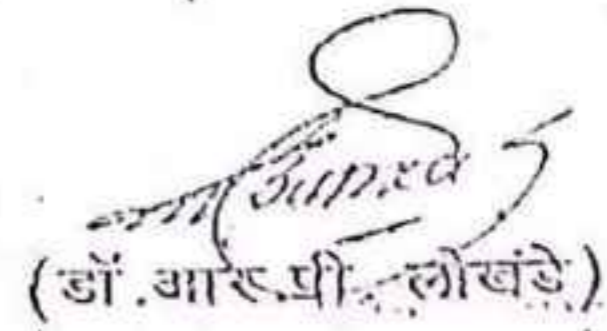 (डॉ.आर.पी. लोखंडे)